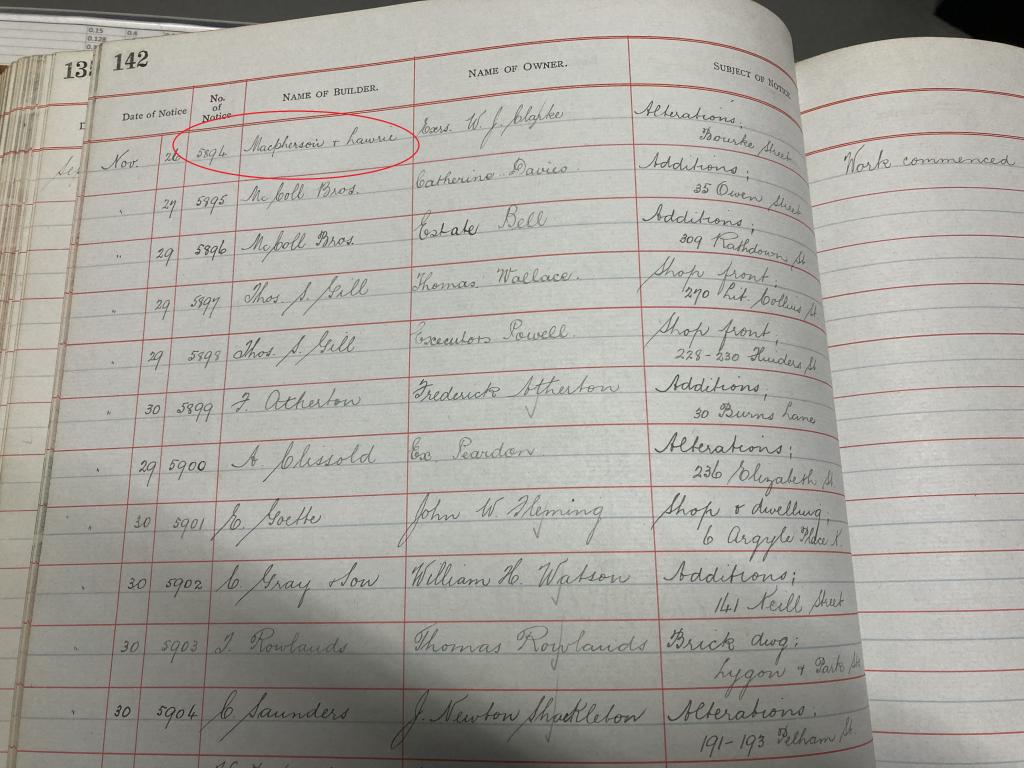 0.15 0.4
0.128
13
142
Date of Notice No. of Notice NAME OF BUILDER. NAME OF OWNER. SUBJECT OF NOTICE
Nov. 26 5894 Macpherson + Lawrie Exrs. W. J. Clarke Alterations;
Bourke Street
Work commenced
" 27 5895 McColl Bros. Catherine Davies Additions;
35 Owen Street
" 29 5896 McColl Bros. Estate Bell Additions;
309 Rathdown St
" 29 5897 Thos. S. Gill Thomas Wallace. Shop front;
270 Lit. Collins St
" 29 5898 Thos. S. Gill Executors Powell Shop front;
228-230 Flinders St
" 30 5899 F. Atherton Frederick Atherton Additions;
30 Burns Lane
" 29 5900 A. Clissold Ex Peardon Alterations;
236 Elizabeth St
" 30 5901 E. Goette John W. Fleming Shop & dwelling;
6 Argyle Place N.
" 30 5902 C. Gray & Son William H. Watson Additions;
141 Neill Street
" 30 5903 T. Rowlands Thomas Rowlands Brick dwg;
Lygon & Park Sts
" 30 5904 C. Saunders J. Newton Shackleton Alterations;
191-193 Pelham St.